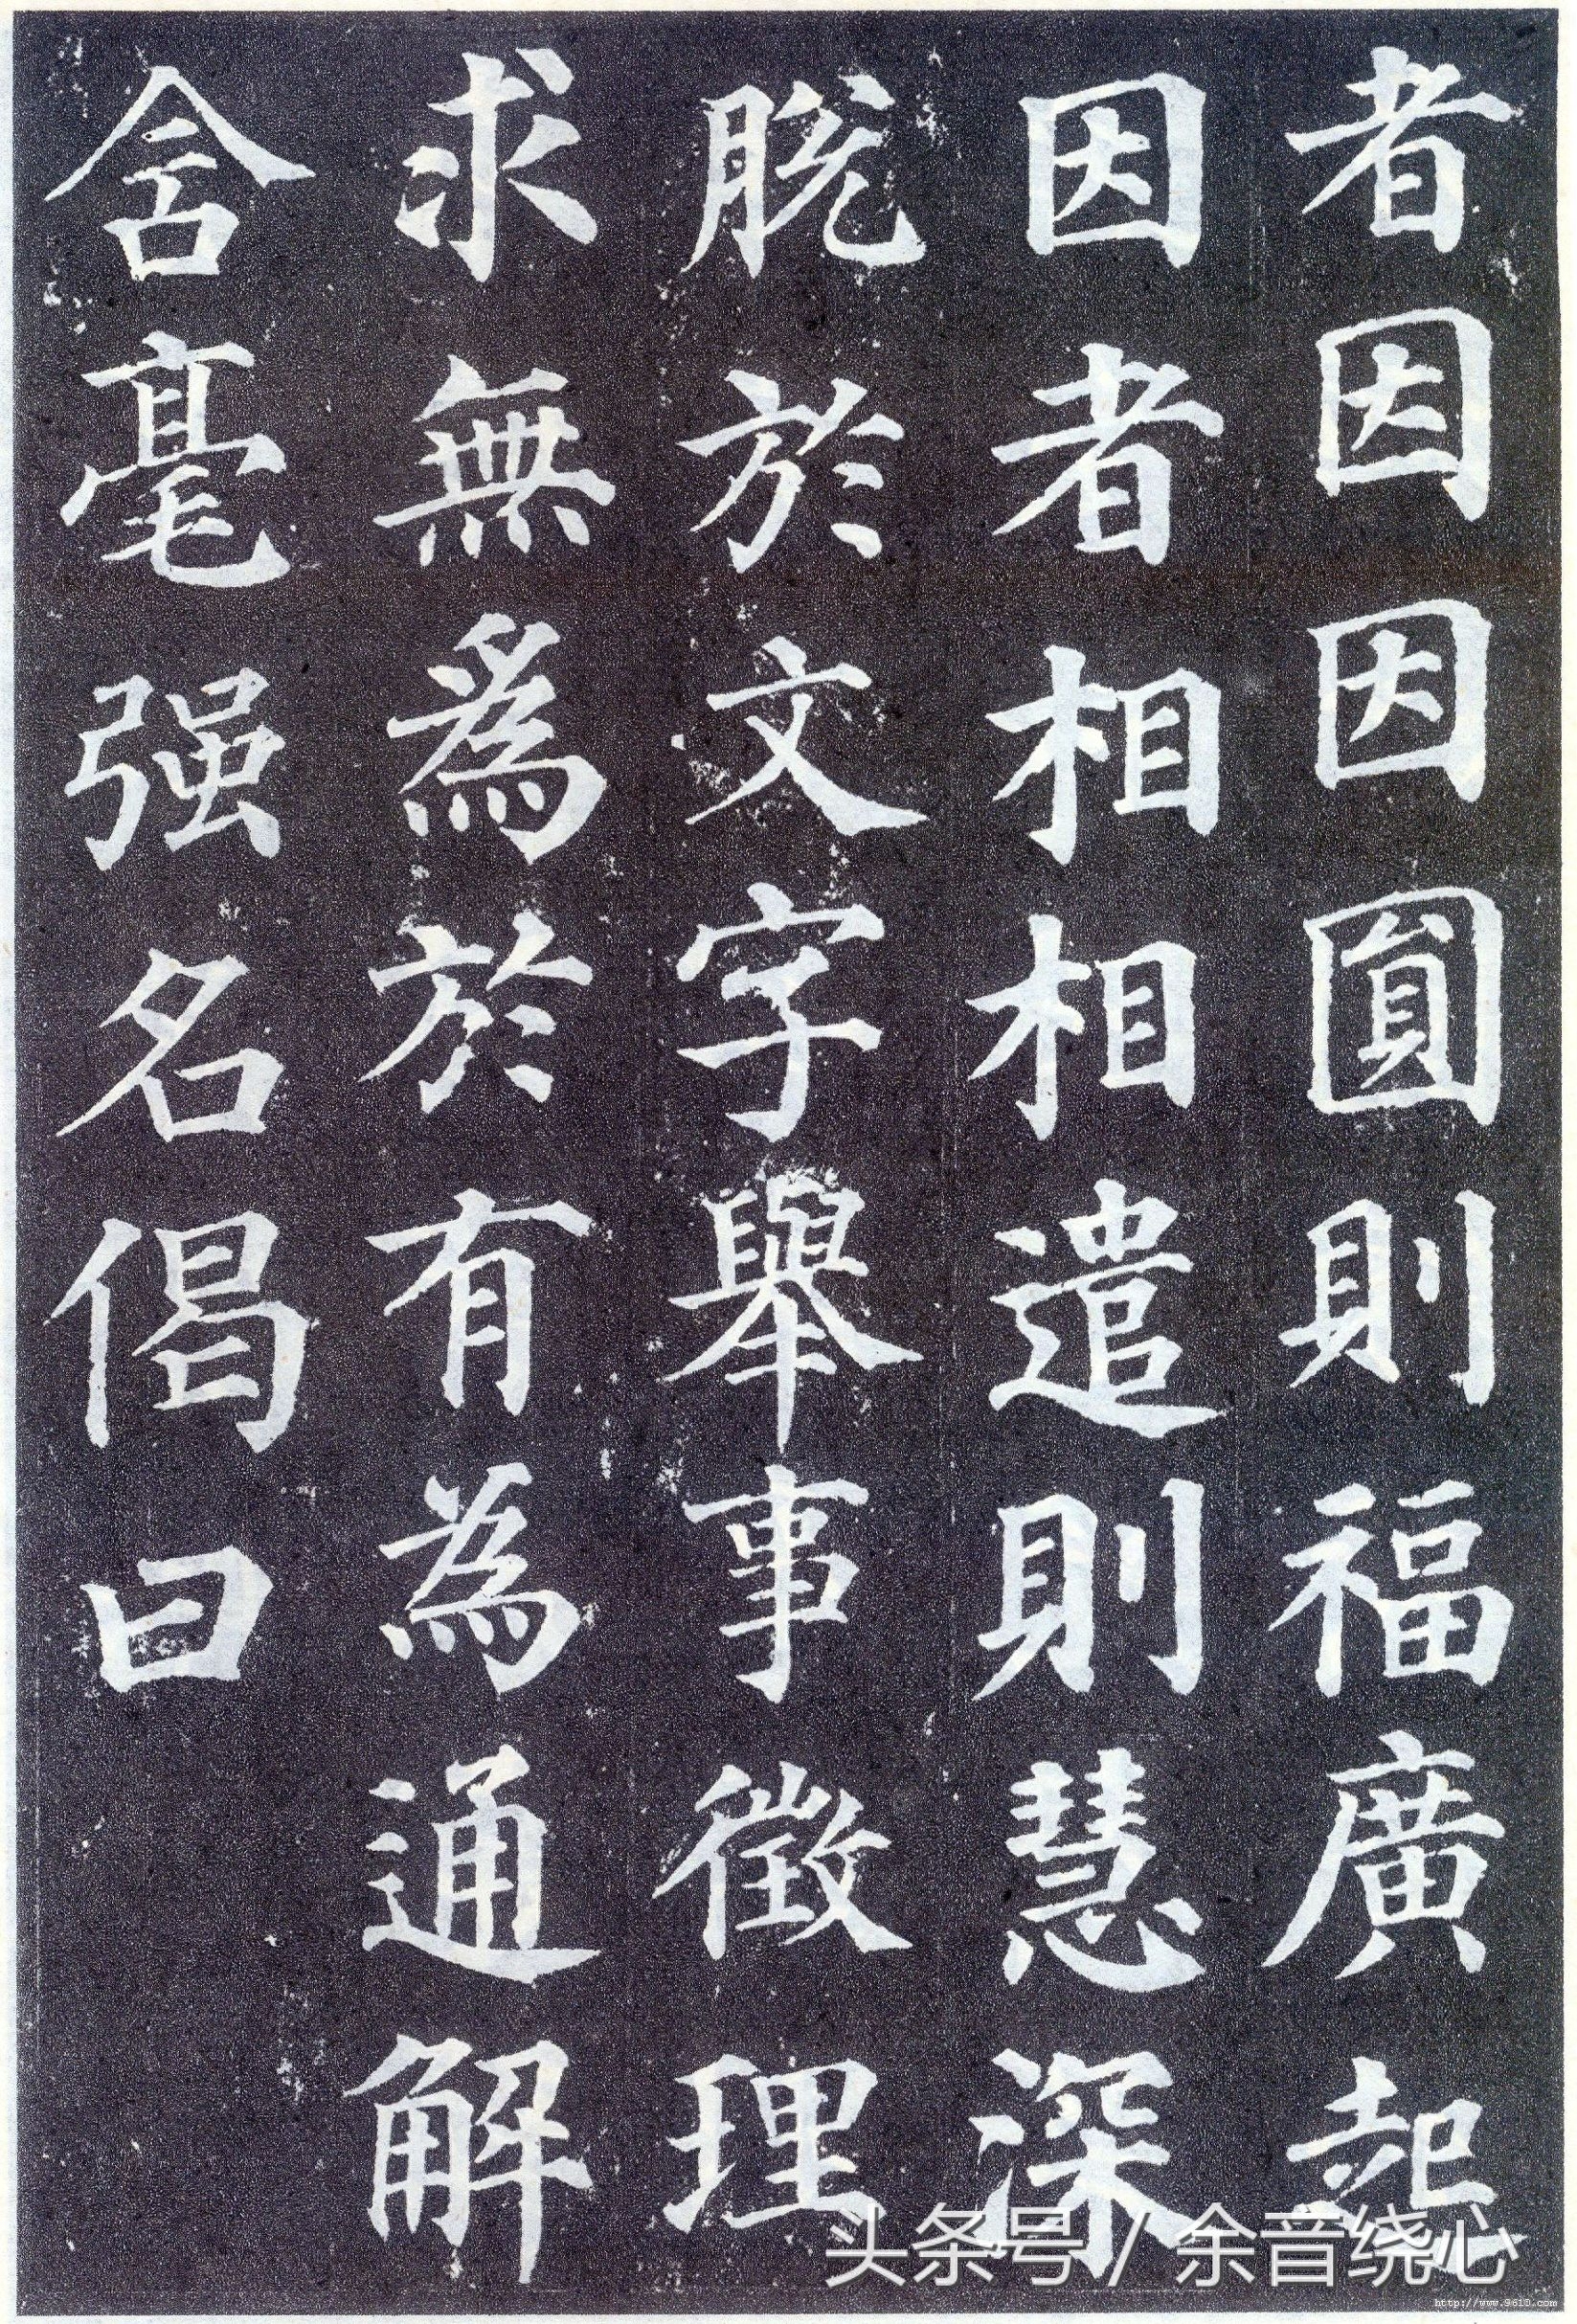 者因因圓則福廣起
因者相相遣則慧深
脱於文字舉事徵理
求無為於有為通解
含毫强名偈曰
头条号 / 余音绕心
http://www.9610.com